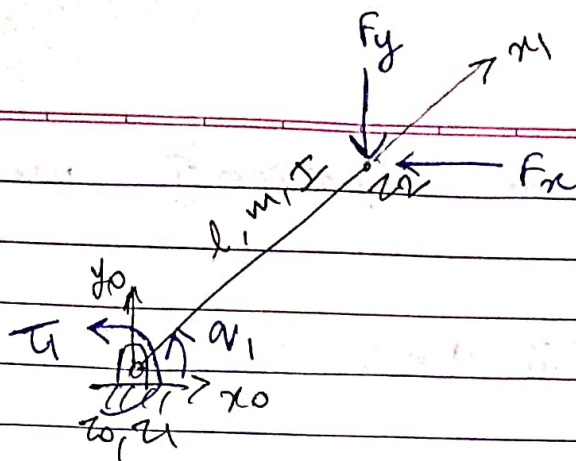 Fy
x1
Fx
z2
l, m, I
y0
τ1
q1
x0
z0, z1